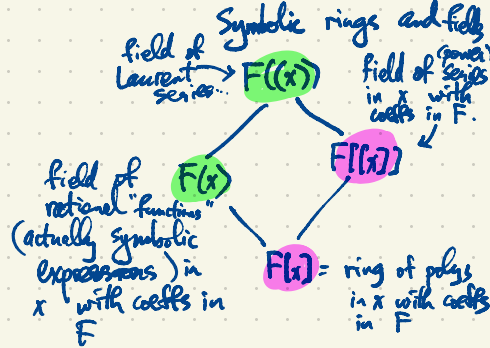 Symbolic rings and fields
field of
Laurent
series...
F((x))
(power)
field of series
in x with
coeffs in F.
F(x)
F[[x]]
field of
rational "functions"
(actually symbolic
expressions) in
x with coeffs in
F
F[x] = ring of polys
in x with coeffs
in F